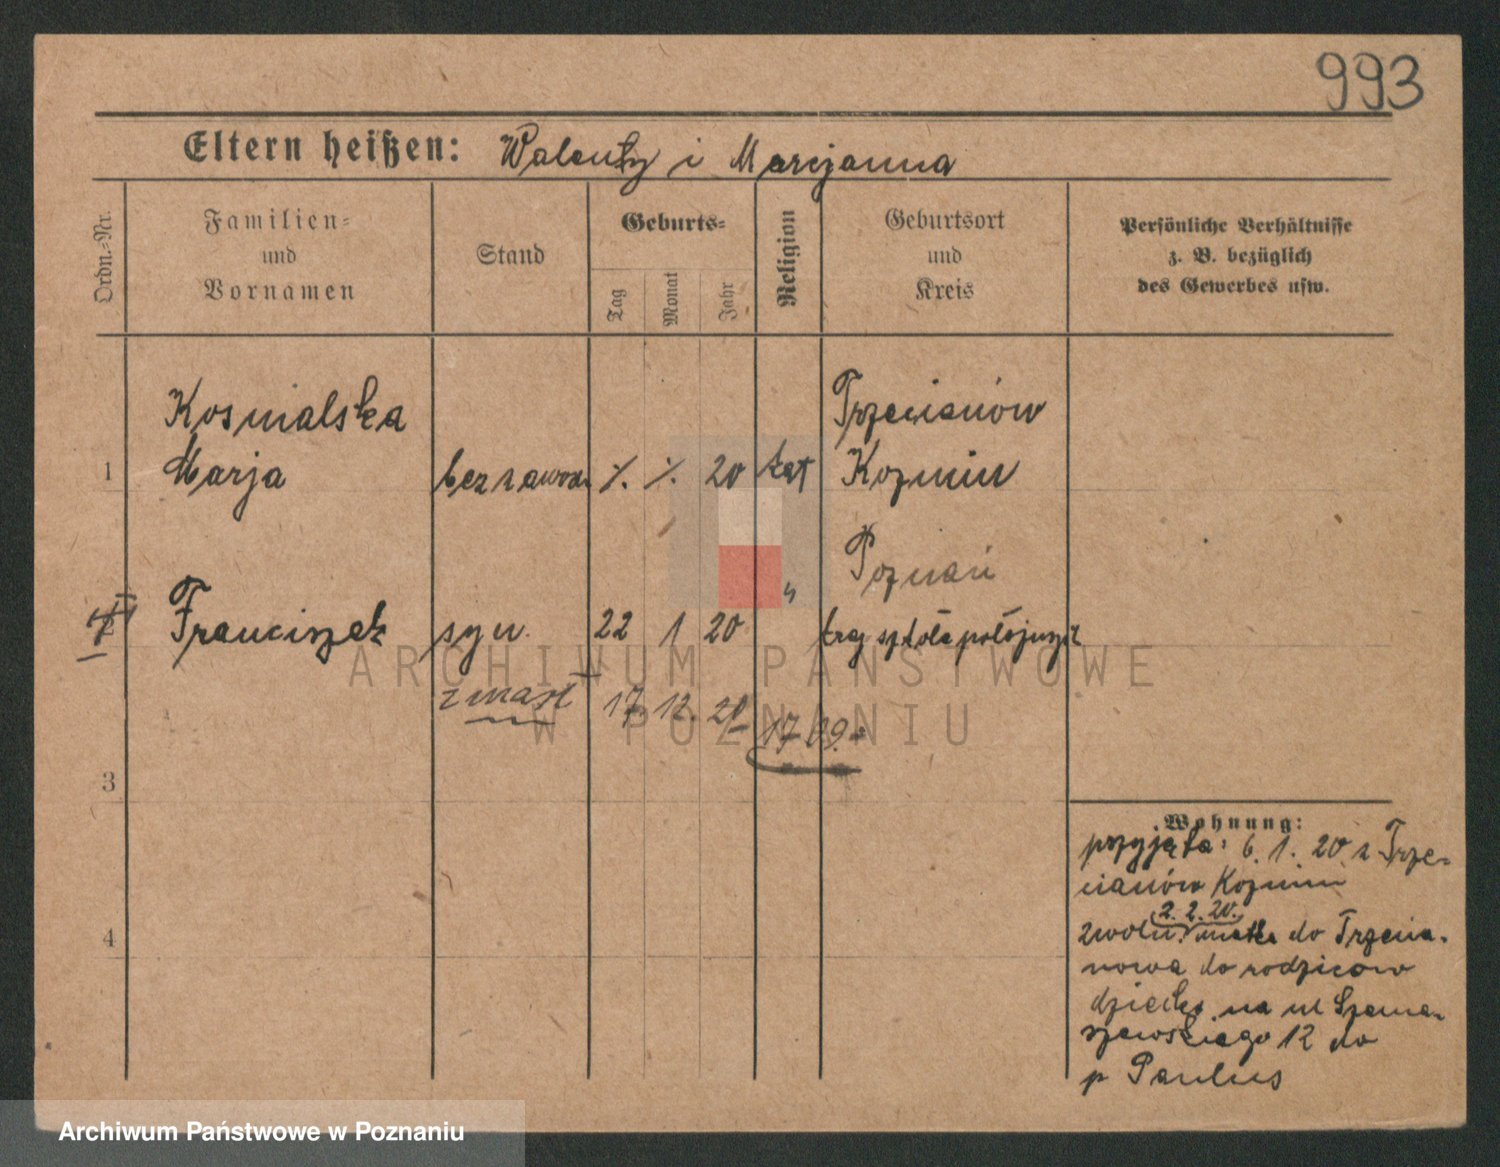 993
Eltern heißen: Walenty i Marcjanna
Ordn.-Nr.
Familien- und Vornamen
Stand
Geburts-
Tag
Monat
Jahr
Religion
Geburtsort und Kreis
Persönliche Verhältnisse z. B. bezüglich des Gewerbes usw.
Kosmalska
Trzecianów
1 Marja bez zawodu ./. ./. 20 kat Koźmin
Poznań
2 Franciszek syn 22 1 20 "
szkoła
17 12. 20
17
3
4
Wohnung:
przyjęta: 6. 1. 20 z Trze-
cianów Koźmin
2. 2. 20.
zwoln. matka do Trzecia-
nowa do rodziców
dziecko na ul Szama-
rzewskiego 12 do
p Paulus
ARCHIWUM PAŃSTWOWE
W POZNANIU
Archiwum Państwowe w Poznaniu